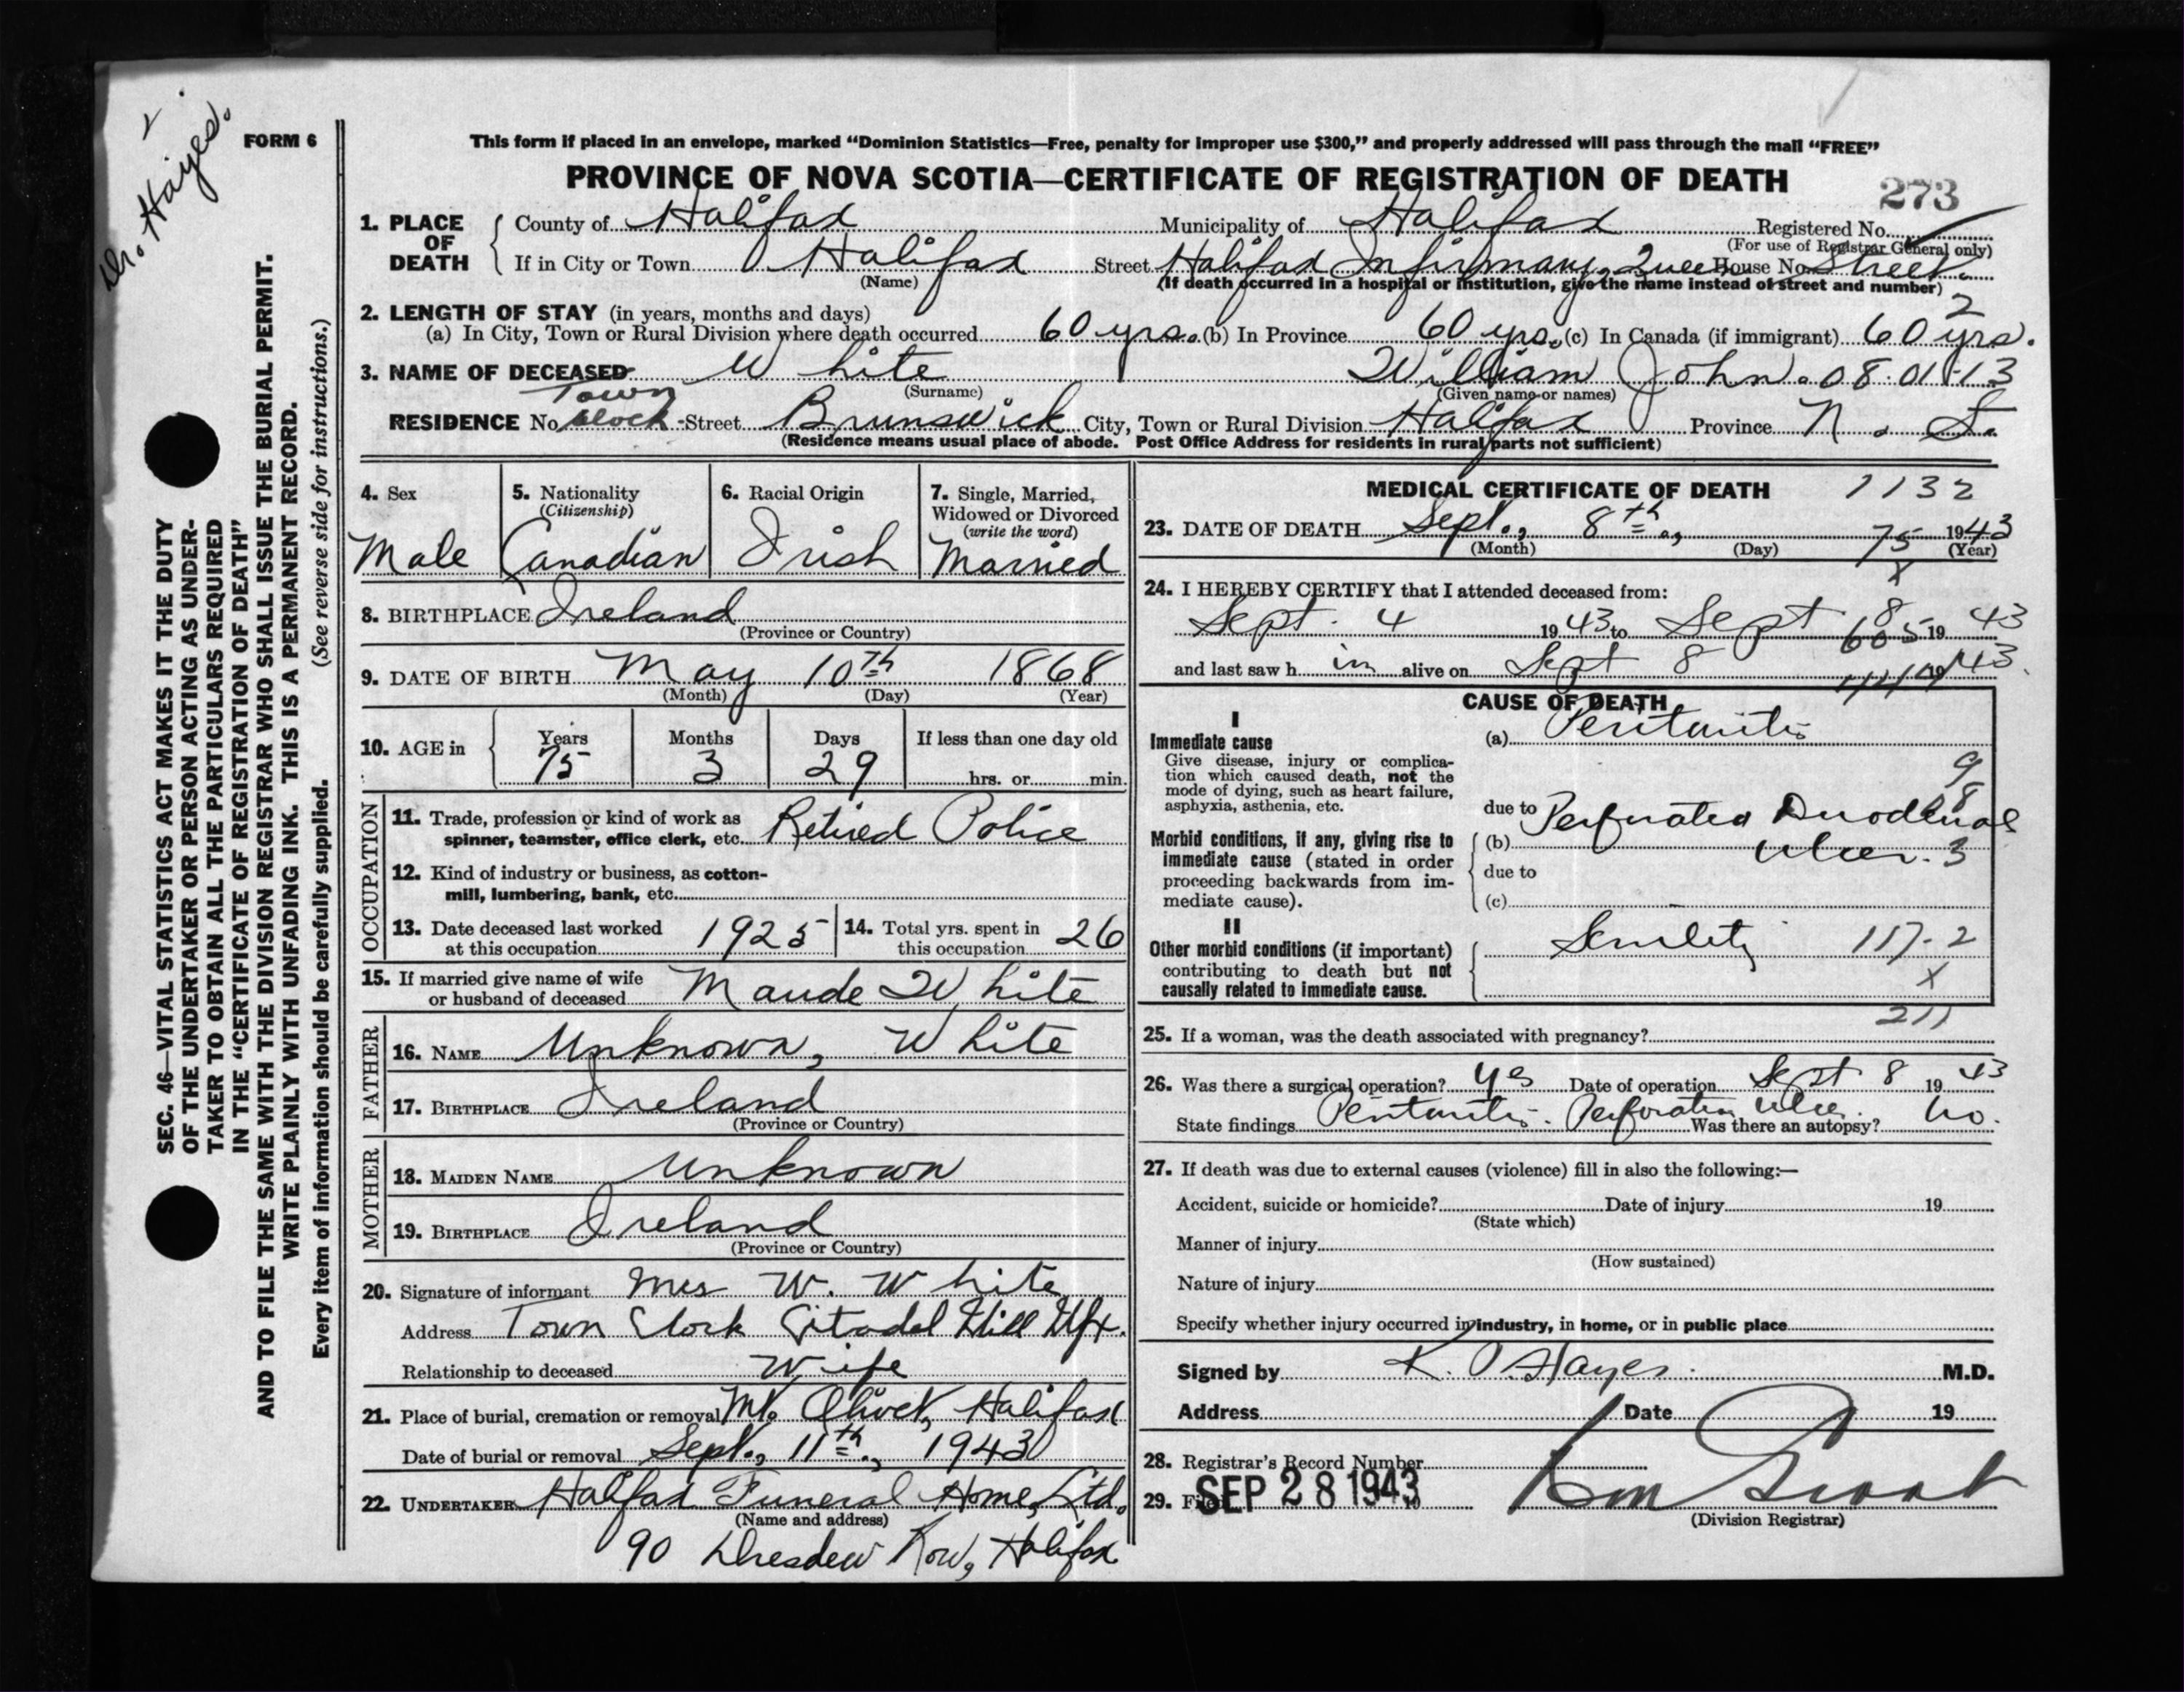 Dr. Hayes.
2
FORM 6
SEC. 46—VITAL STATISTICS ACT MAKES IT THE DUTY
OF THE UNDERTAKER OR PERSON ACTING AS UNDER-
TAKER TO OBTAIN ALL THE PARTICULARS REQUIRED
IN THE "CERTIFICATE OF REGISTRATION OF DEATH"
AND TO FILE THE SAME WITH THE DIVISION REGISTRAR WHO SHALL ISSUE THE BURIAL PERMIT.
WRITE PLAINLY WITH UNFADING INK. THIS IS A PERMANENT RECORD.
Every item of information should be carefully supplied. (See reverse side for instructions.)
This form if placed in an envelope, marked "Dominion Statistics—Free, penalty for improper use $300," and properly addressed will pass through the mail "FREE"
PROVINCE OF NOVA SCOTIA—CERTIFICATE OF REGISTRATION OF DEATH
273
1. PLACE OF DEATH County of Halifax Municipality of Halifax Registered No.
(For use of Registrar General only)
If in City or Town Halifax Street Halifax Infirmary, Queen House No. Street.
(Name) (If death occurred in a hospital or institution, give the name instead of street and number)
2. LENGTH OF STAY (in years, months and days) 2
(a) In City, Town or Rural Division where death occurred 60 yrs. (b) In Province 60 yrs. (c) In Canada (if immigrant) 60 yrs.
3. NAME OF DECEASED White William John. 08:01-13
(Surname) (Given name or names)
RESIDENCE No. Town Clock - Street Brunswick City, Town or Rural Division Halifax Province N. S.
(Residence means usual place of abode. Post Office Address for residents in rural parts not sufficient)
4. Sex 5. Nationality 6. Racial Origin 7. Single, Married,
(Citizenship) Widowed or Divorced
(write the word)
Male Canadian Irish Married
8. BIRTHPLACE Ireland
(Province or Country)
9. DATE OF BIRTH May 10th 1868
(Month) (Day) (Year)
10. AGE in Years Months Days If less than one day old
75 3 29 hrs. or min.
OCCUPATION
11. Trade, profession or kind of work as
spinner, teamster, office clerk, etc. Retired Police
12. Kind of industry or business, as cotton-
mill, lumbering, bank, etc.
13. Date deceased last worked
at this occupation 1925
14. Total yrs. spent in
this occupation 26
15. If married give name of wife
or husband of deceased Maude White
FATHER
16. NAME Unknown, White
17. BIRTHPLACE Ireland
(Province or Country)
MOTHER
18. MAIDEN NAME Unknown
19. BIRTHPLACE Ireland
(Province or Country)
20. Signature of informant Mrs W. White
Address Town Clock Citadel Hill Hfx.
Relationship to deceased Wife
21. Place of burial, cremation or removal Mt. Olivet, Halifax
Date of burial or removal Sept., 11th., 1943
22. UNDERTAKER Halifax Funeral Home, Ltd.
(Name and address)
90 Dresden Row, Halifax
MEDICAL CERTIFICATE OF DEATH 1132
23. DATE OF DEATH Sept., 8th., 1943
(Month) (Day) (Year)
75
X
24. I HEREBY CERTIFY that I attended deceased from:
Sept. 4 1943 to Sept 8 19 43
605
and last saw h im alive on Sept 8 19 43.
CAUSE OF DEATH
I
Immediate cause
Give disease, injury or complica-
tion which caused death, not the
mode of dying, such as heart failure,
asphyxia, asthenia, etc.
(a) Peritonitis
9
8
due to Perforated Duodenal
Morbid conditions, if any, giving rise to
immediate cause (stated in order
proceeding backwards from im-
mediate cause).
(b) ulcer. 3
due to
(c)
II
Other morbid conditions (if important)
contributing to death but not
causally related to immediate cause.
Senility 117-2
X
211
25. If a woman, was the death associated with pregnancy?
26. Was there a surgical operation? yes Date of operation Sept 8 19 43
State findings Peritonitis. Perforation ulcer. Was there an autopsy? No.
27. If death was due to external causes (violence) fill in also the following:—
Accident, suicide or homicide? Date of injury 19
(State which)
Manner of injury
(How sustained)
Nature of injury
Specify whether injury occurred in industry, in home, or in public place
Signed by K. O. Hayes. M.D.
Address Date 19
28. Registrar's Record Number
29. Filed SEP 28 1943
(Division Registrar)